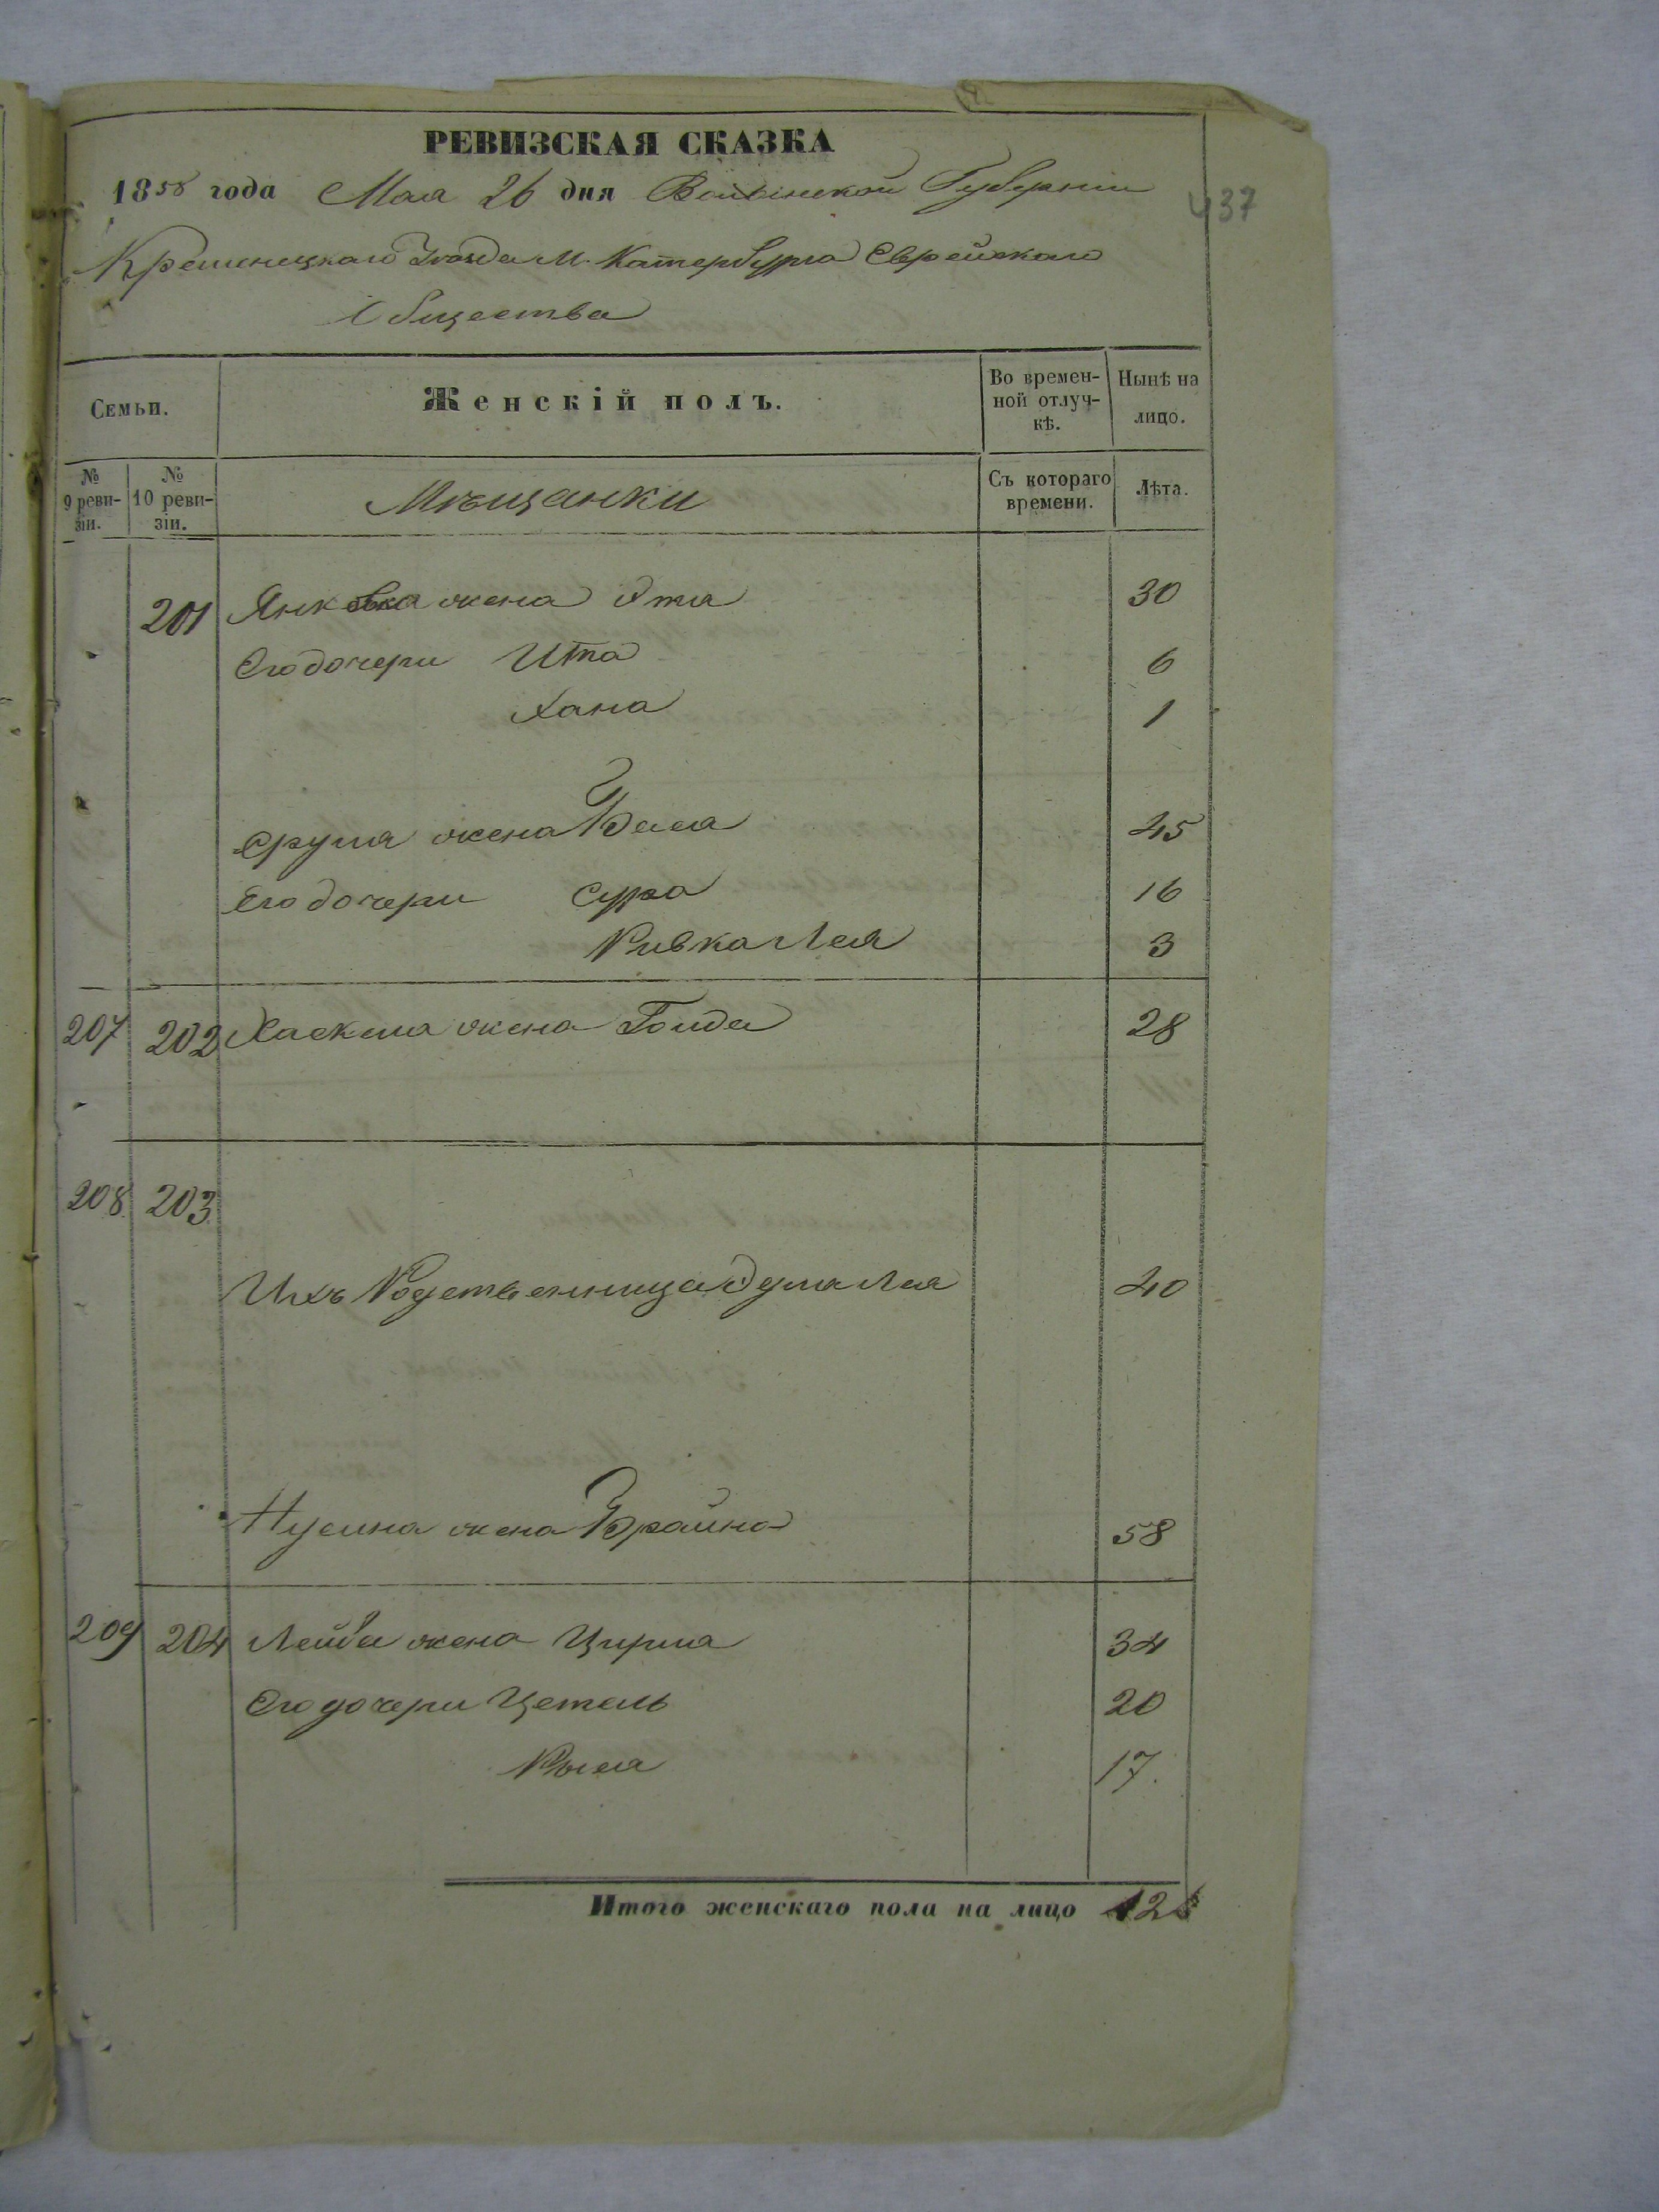 РЕВИЗСКАЯ СКАЗКА
1858 года Мая 26 дня Волынской Губернии
437
Кременецкаго Уезда М. Катербурга Еврейскаго
Общества
Семьи. Женскій полъ. Во времен-ной отлуч-кѣ. Нынѣ на лицо.
№ 9 реви-зіи. № 10 реви-зіи. Мѣщанки Съ котораго времени. Лѣта.
201 Янкеля жена Этя 30
Его дочери Ита 6
Хана 1
Сруля жена Бася 45
Его дочери Сура 16
Ривка Лея 3
207 202 Хаскеля жена Голда 28
208 203
Ихъ Родственница Лея 40
Нусина жена Брайна 58
209 204 Лейба жена Цирля 34
Его дочери Цетель 20
17.
Итого женскаго пола на лицо 12